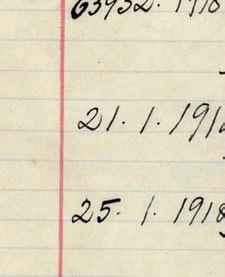 63952. 1918
21. 1. 191
25. 1. 1918